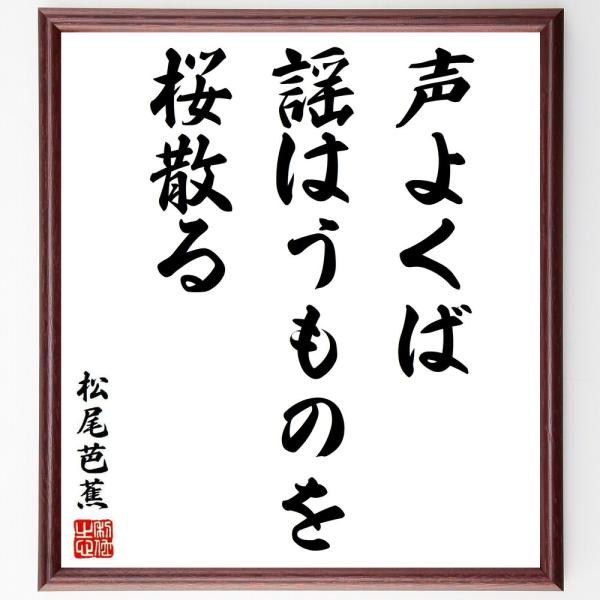 声よくば
謡はうものを
桜散る
松尾芭蕉